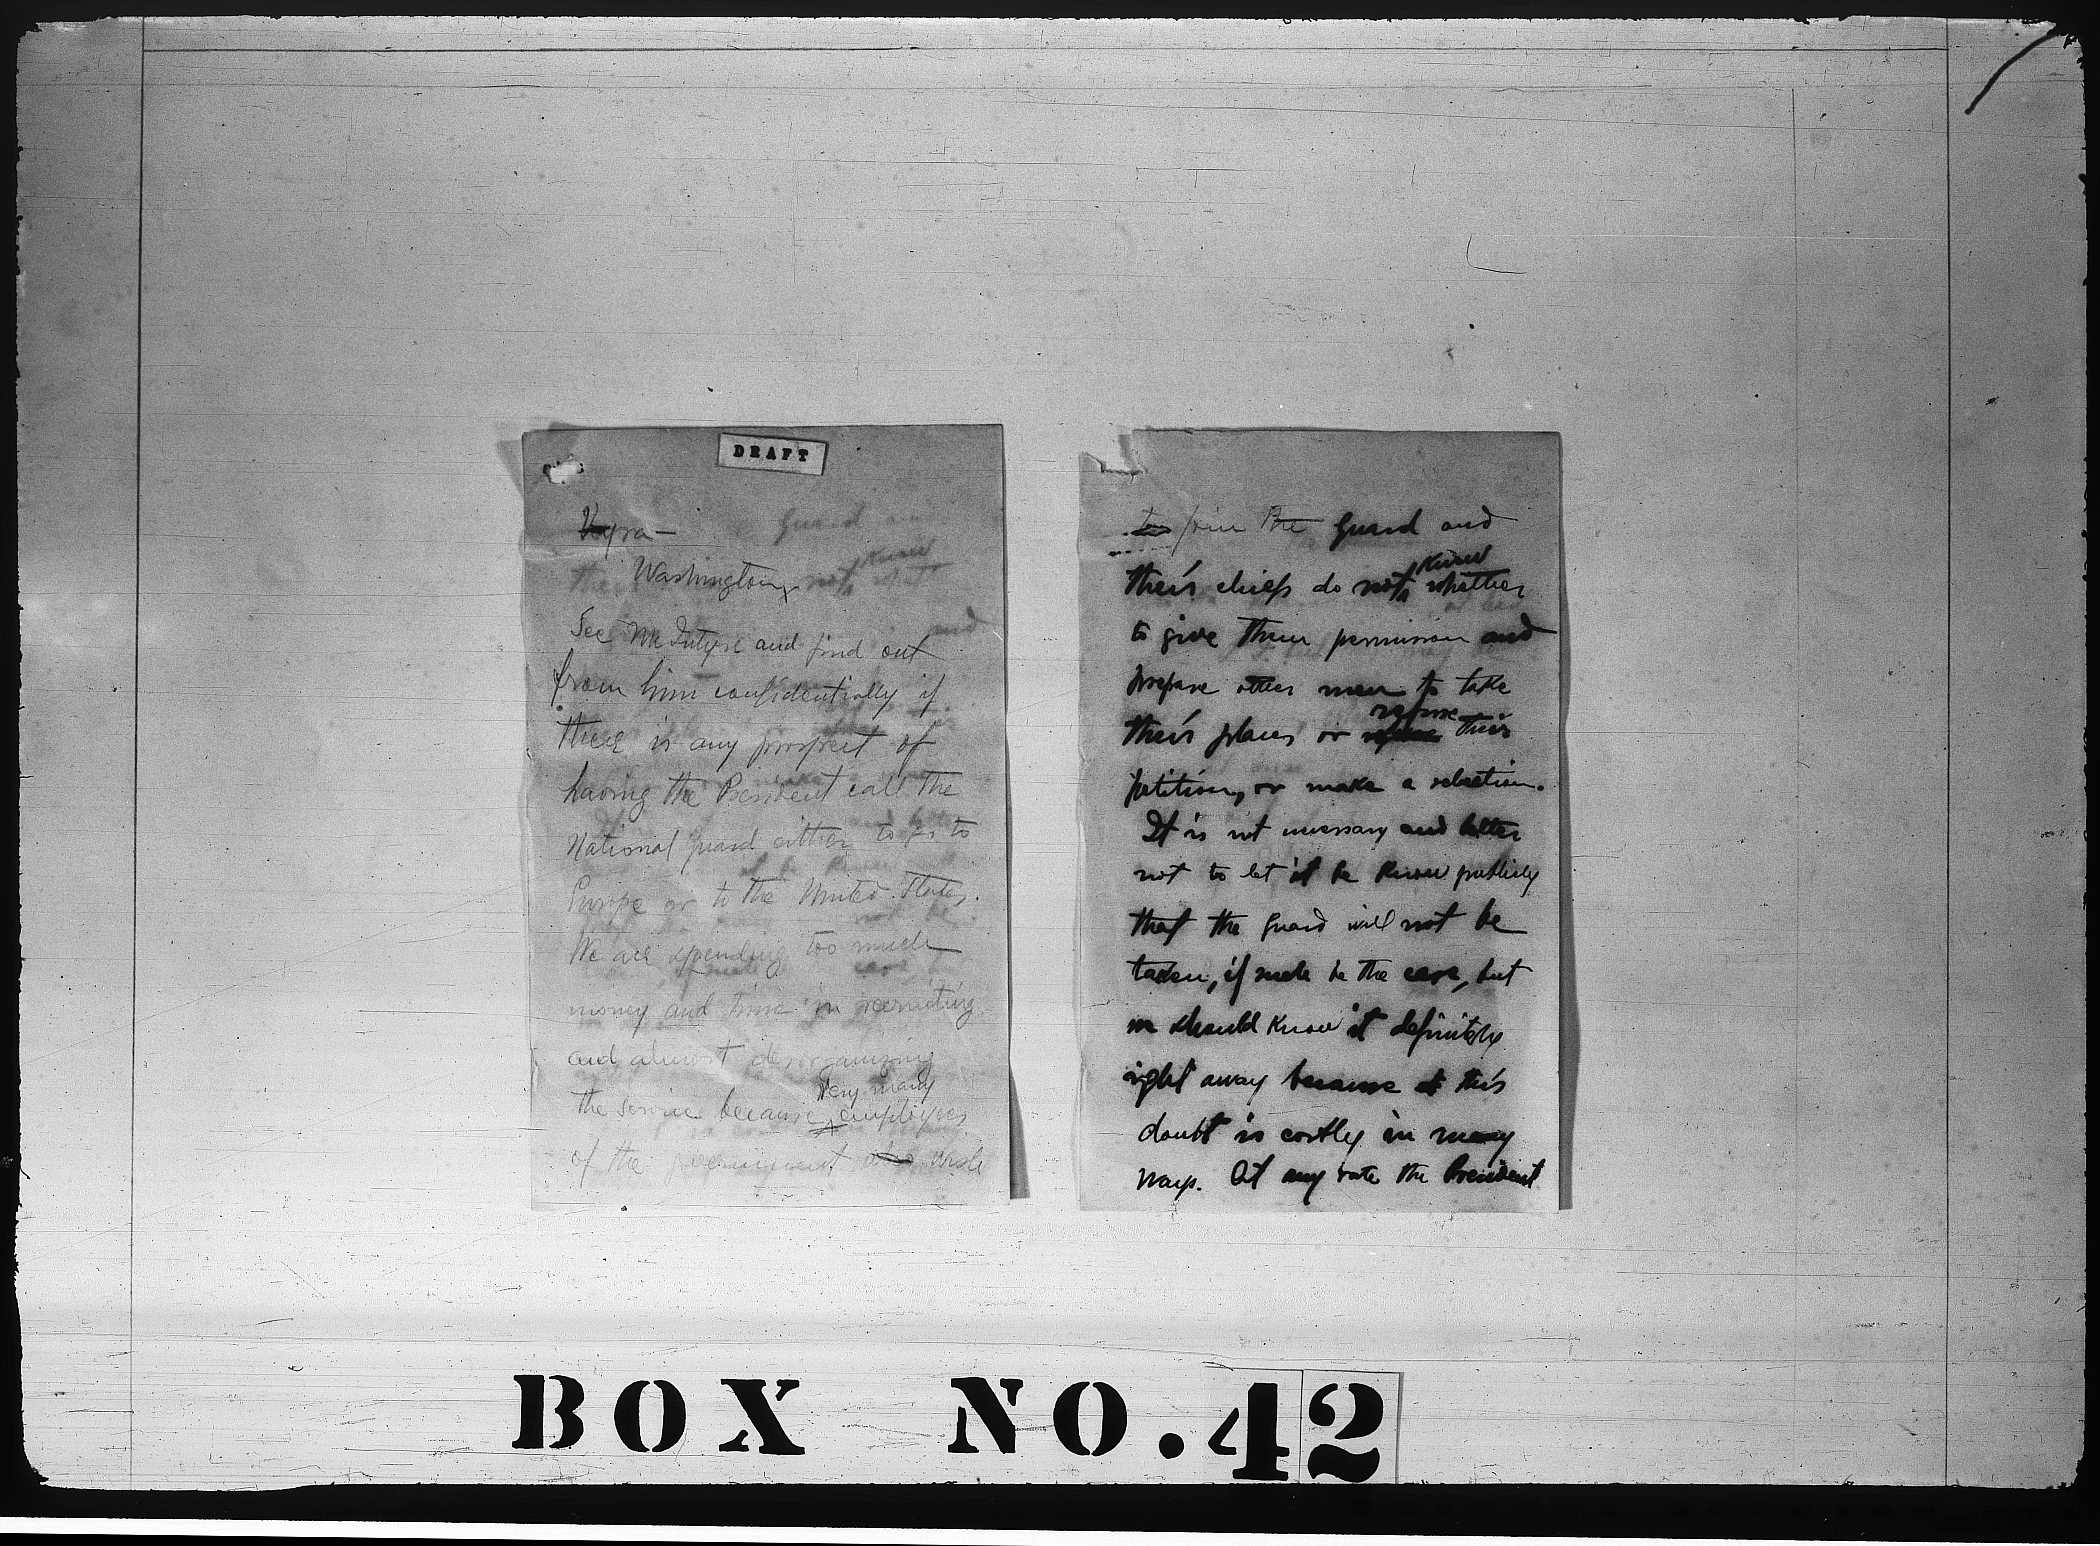 DRAFT
Kyra—
Washington
See McIntyre and find out
from him confidentially if
there is any prospect of
having the President call the
National Guard either to go to
Europe or to the United States.
We are spending too much
money and time in recruiting
and almost desorganizing
very many
the service because employees
of the government wish
to join the Guard and
know
their chiefs do not whether
to give them permission and
prepare other men to take
refuse
their places or refuse their
petition, or make a selection.
It is not necessary and better
not to let it be known publicly
that the guard will not be
taken, if such be the case, but
we should know it definitely
right away because this
doubt is costly in many
ways. At any rate the President
BOX NO. 42